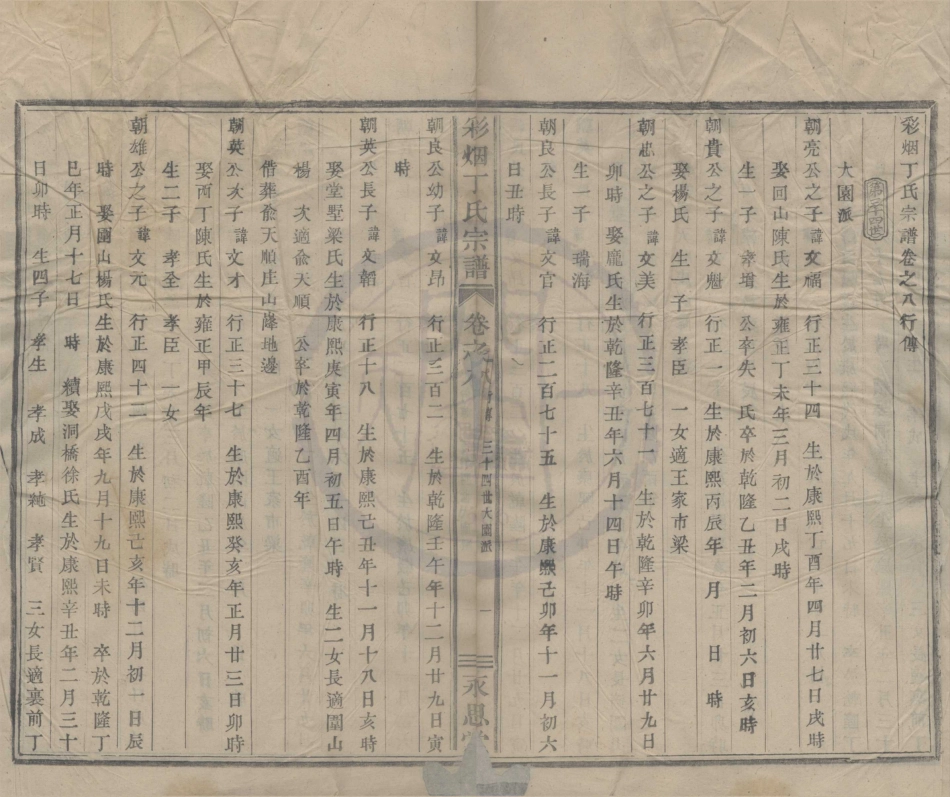 彩烟丁氏宗譜卷之八行傳
第三十四世
大園派
朝亮公之子諱文福 行正三十四 生於康熙丁酉年四月廿七日戌時
娶回山陳氏生於雍正丁未年三月初二日戌時
生一子 孝增 公卒失 氏卒於乾隆乙丑年二月初六日亥時
朝貴公之子諱文魁 行正一 生於康熙丙辰年 月 日 時
娶楊氏 生一子 孝臣 一女適王家市梁
朝忠公之子諱文美 行正三百七十一 生於乾隆辛卯年六月廿九日
卯時 娶龐氏生於乾隆辛丑年六月十四日午時
生一子 瑞海
朝良公長子諱文官 行正二百七十五 生於康熙己卯年十一月初六
日丑時
彩烟丁氏宗譜 卷之八 三十四世大園派 一 永思堂
朝良公幼子諱文昂 行正三百二 生於乾隆壬午年十二月廿九日寅
時
朝英公長子諱文韜 行正十八 生於康熙己丑年十一月十八日亥時
娶堂墅梁氏生於康熙庚寅年四月初五日午時 生二女長適圍山
楊 次適兪天順 公卒於乾隆乙酉年
借葬兪天順庄山 地邊
朝英公次子諱文才 行正三十七 生於康熙癸亥年正月廿三日卯時
娶西丁陳氏生於雍正甲辰年
生二子 孝全 孝臣 一女
朝雄公之子諱文元 行正四十二 生於康熙己亥年十二月初一日辰
時 娶圍山楊氏生於康熙戊戌年九月十九日未時 卒於乾隆丁
巳年正月十七日 時 續娶洞橋徐氏生於康熙辛丑年二月三十
日卯時 生四子 孝生 孝成 孝純 孝賢 三女長適裏前丁